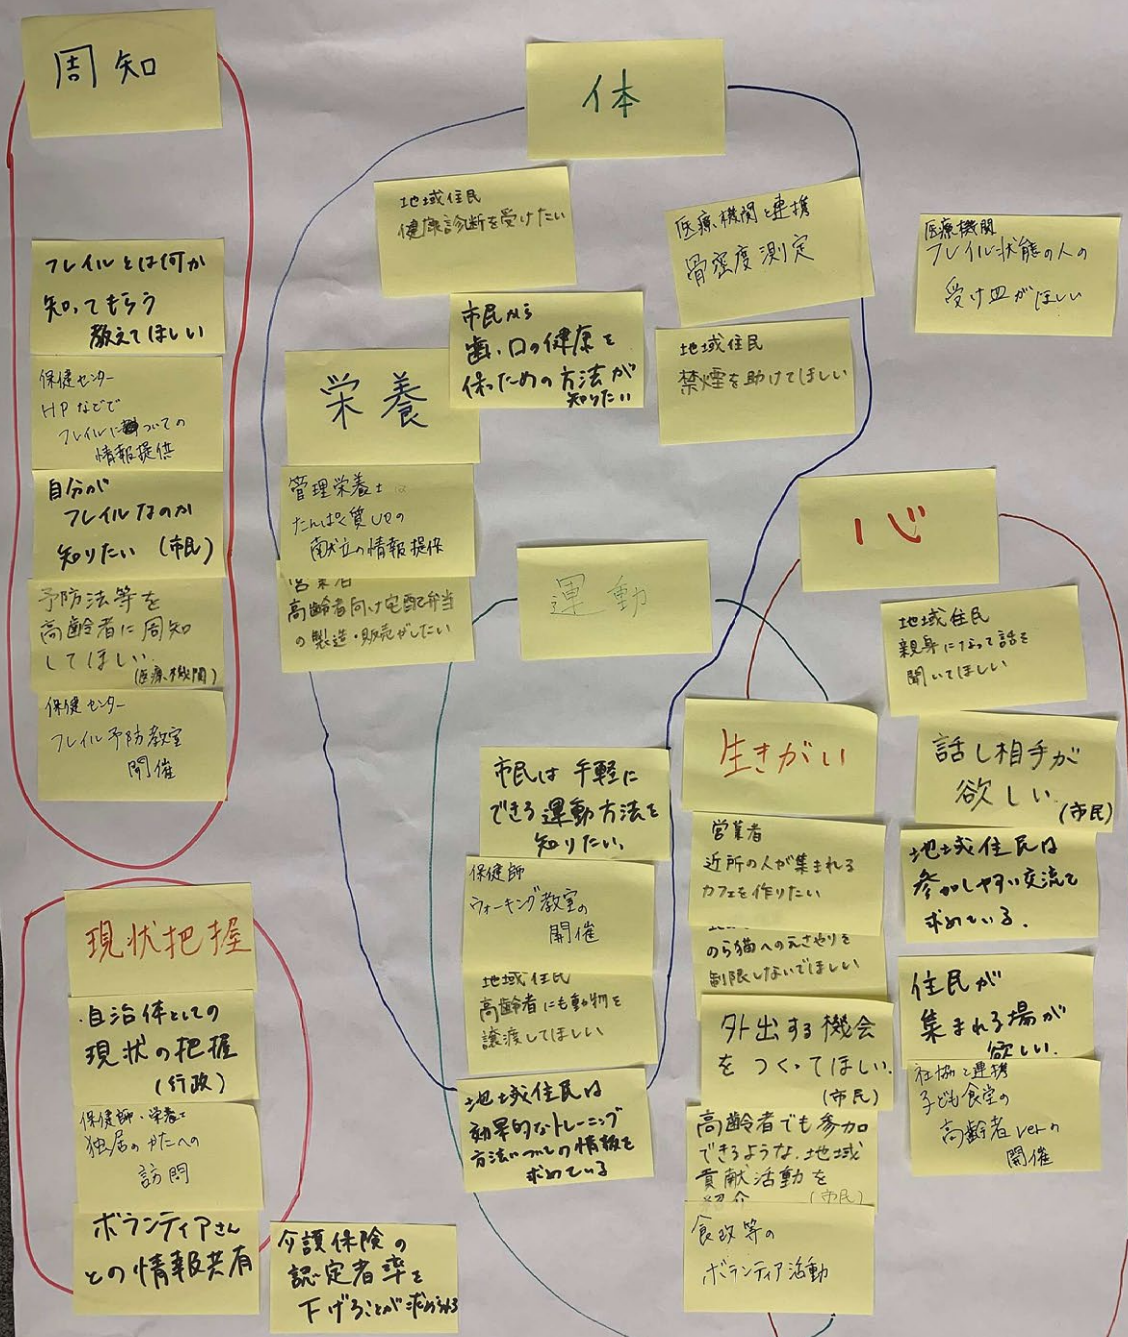 周知
フレイルとは何か
知ってもらう
教えてほしい
保健センター
HPなどで
フレイルについての
情報提供
自分が
フレイルなのか
知りたい (市民)
予防法等を
高齢者に周知
してほしい
(医療機関)
保健センター
フレイル予防教室
開催
現状把握
・自治体としての
現状の把握
(行政)
保健師・栄養士
独居のかたへの
訪問
ボランティアさん
との情報共有
介護保険の
認定者率を
下げることが求められる
体
地域住民
健康診断を受けたい
医療機関と連携
骨密度測定
医療機関
フレイル状態の人の
受け皿がほしい
市民から
歯、口の健康を
保つための方法が
知りたい
地域住民
禁煙を助けてほしい
栄養
管理栄養士
たんぱく質upの
献立の情報提供
営業者
高齢者向け宅配弁当
の製造・販売がしたい
運動
市民は手軽に
できる運動方法を
知りたい。
保健師
ウォーキング教室の
開催
地域住民
高齢者にも動物を
譲渡してほしい
地域住民は
効果的なトレーニング
方法についての情報を
求めている
心
地域住民
親身になって話を
聞いてほしい
話し相手が
欲しい
(市民)
地域住民は
参加しやすい交流を
求めている。
住民が
集まれる場が
欲しい。
社協と連携
子ども食堂の
高齢者verの
開催
生きがい
営業者
近所の人が集まれる
カフェを作りたい
のら猫へのえさやりを
制限しないでほしい
外出する機会
をつくってほしい。
(市民)
高齢者でも参加
できるような、地域
貢献活動を
紹介 (市民)
食改等の
ボランティア活動